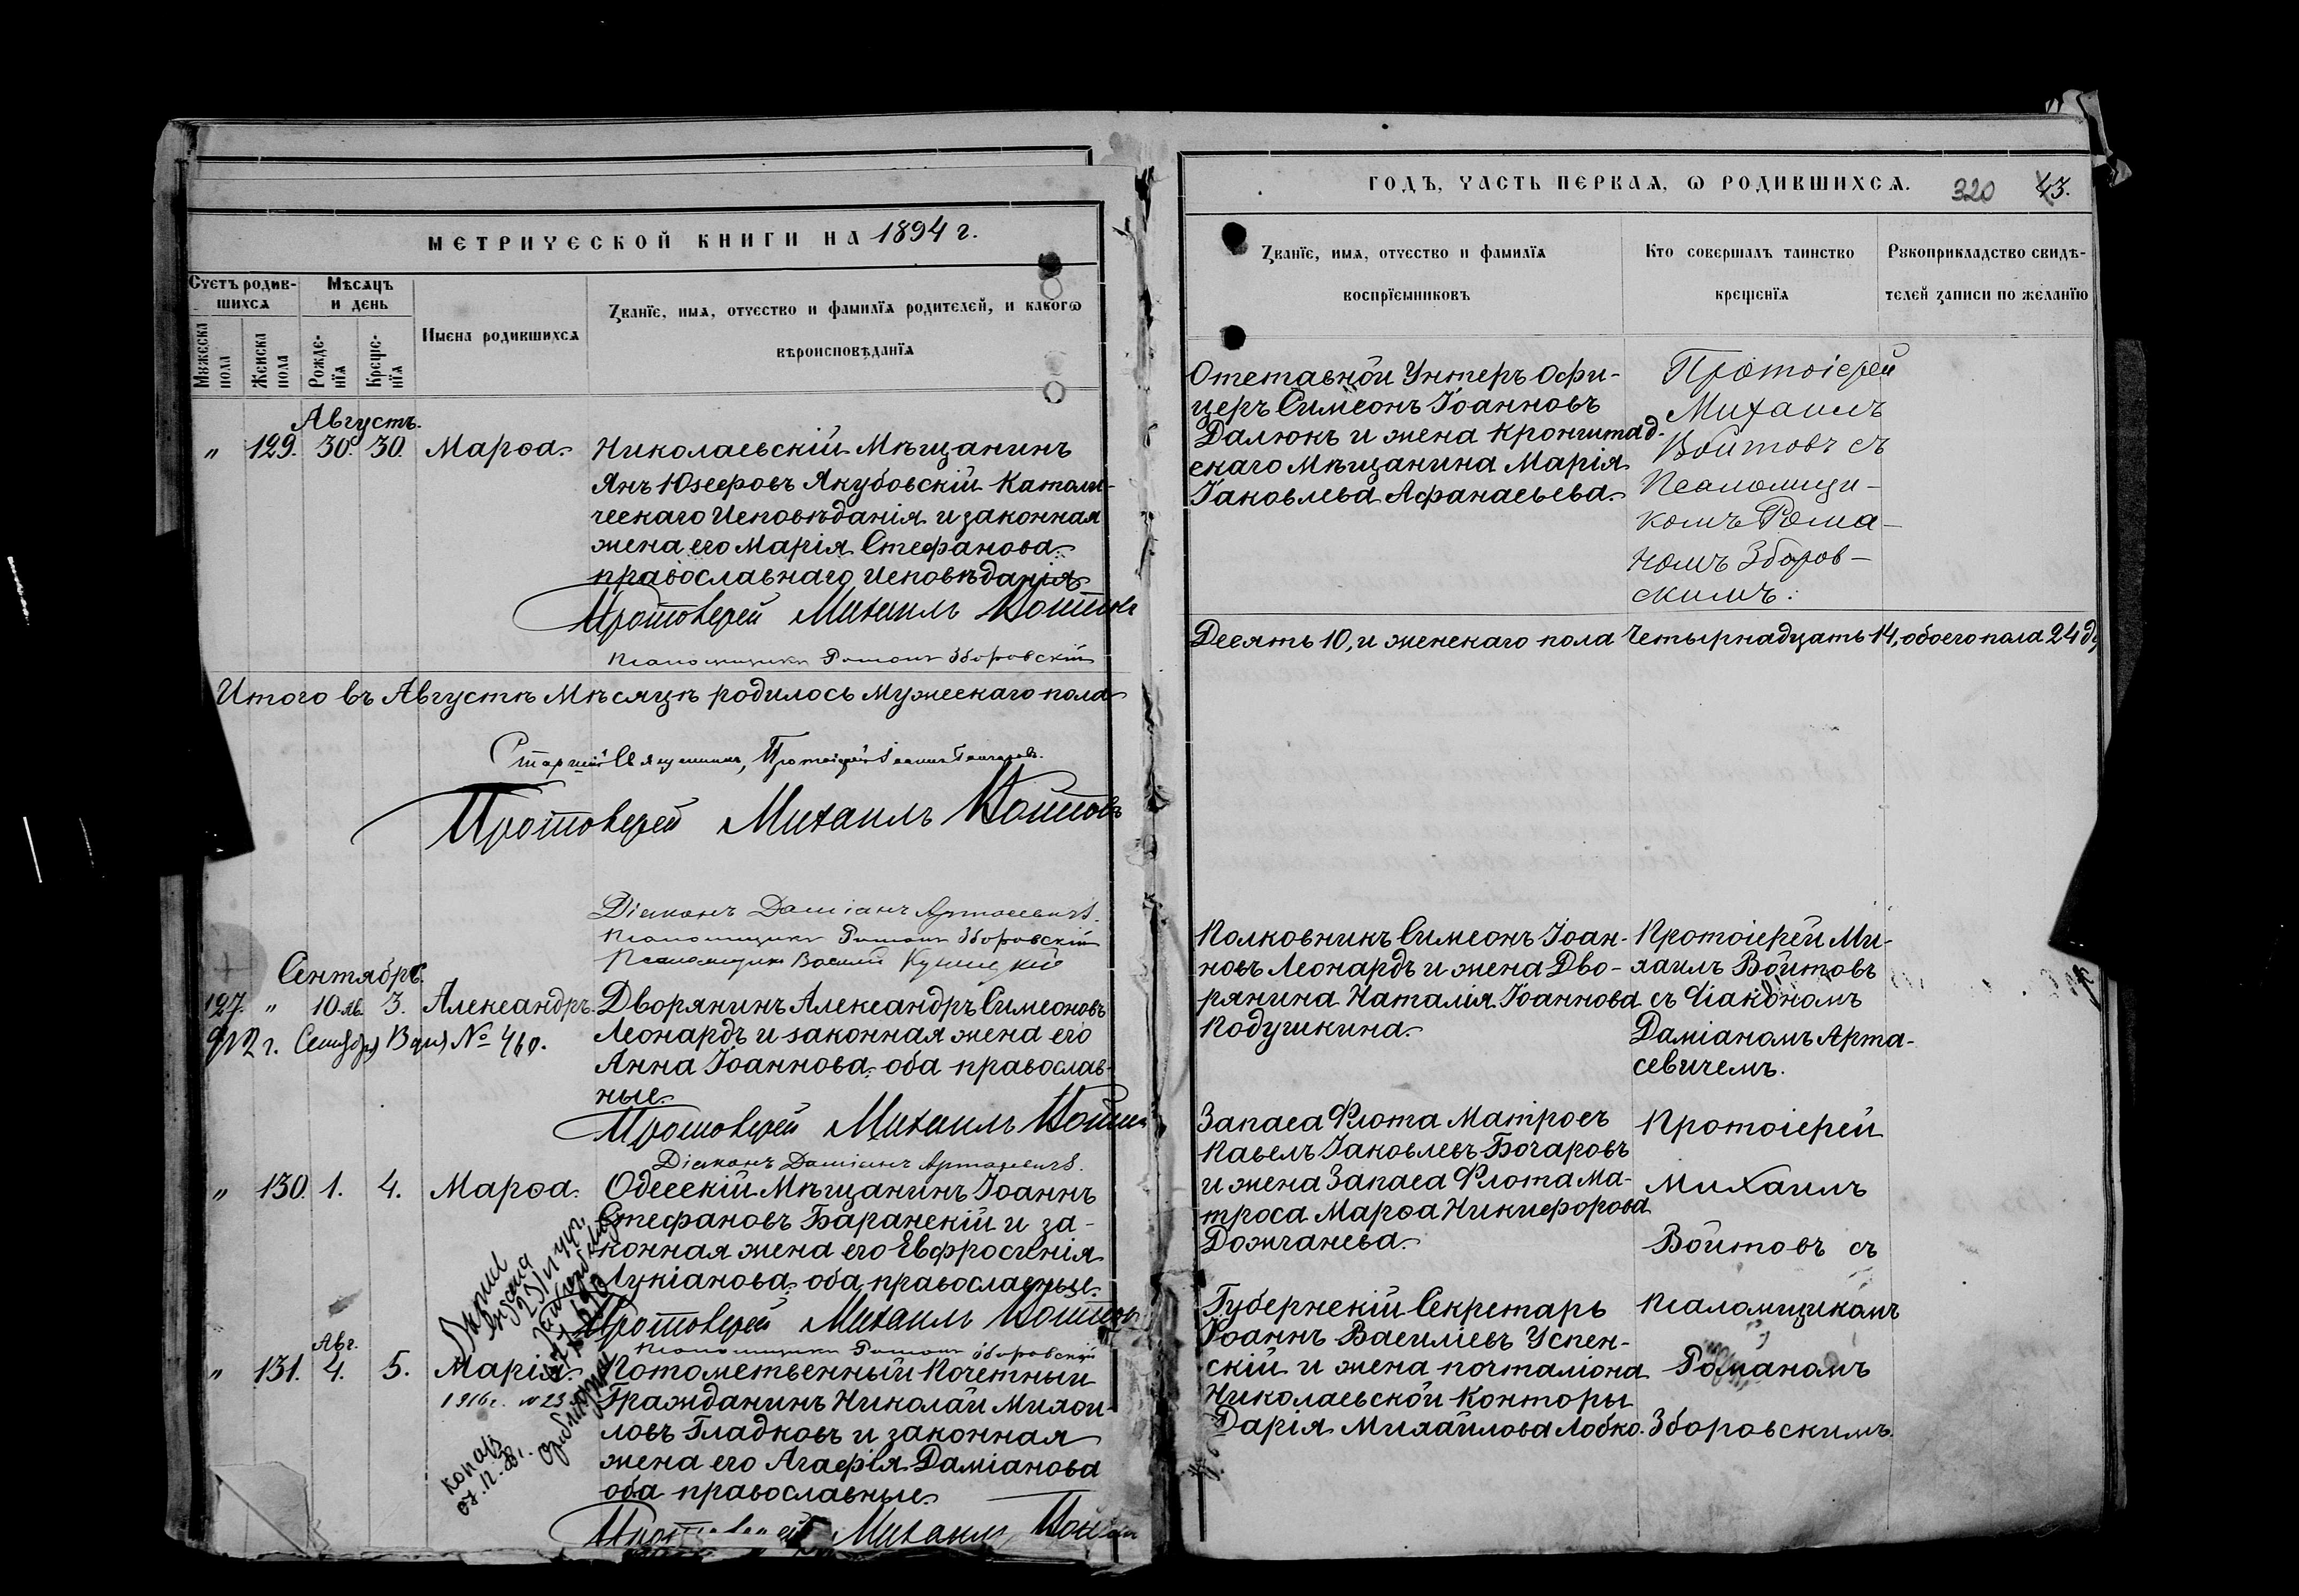 МЕТРИЧЕСКОЙ КНИГИ НА 1894 г.
Счетъ родив-
шихся
Мѣсяцъ
и день
Мужеска
пола
Женска
пола
Рожде-
нїя
Креще-
нїя
Имена родившихся
Званїе, имя, отчество и фамилїя родителей, и какогѡ
вѣроисповѣданїя
Августъ.
" 129. 30. 30. Марѳа. Николаевскій Мѣщанинъ
Янъ Юзефовъ Якубовскій Католи-
ческаго Исповѣданія и законная
жена его Марія Стефанова
православнаго исповѣданія
Протоіерей Михаилъ Войтовъ
Псаломщикъ Романъ Зборовскій
Итого въ Августѣ Мѣсяцѣ родилось Мужескаго пола
Старшій Священникъ, Протоіерей
Протоіерей Михаилъ Войтовъ
Діаконъ Даміанъ Артасевичъ.
Псаломщикъ Романъ Зборовскій
Псаломщикъ Василій
Сентябрь.
127. " 10. 3. Александръ. Дворянинъ Александръ Симеоновъ
Леонардъ и законная жена его
Анна Іоаннова, оба православ-
ные.
912 г. Сентября № 460.
Протоіерей Михаилъ Войтовъ
Діаконъ Даміанъ Артасевичъ.
" 130. 1. 4. Марѳа. Одесскій Мѣщанинъ Іоаннъ
Стефановъ Баранскій и за-
конная жена его Евфросинія
Лукіанова, оба православные.
Протоіерей Михаилъ Войтовъ
Псаломщикъ Романъ Зборовскій
Авг.
" 131. 4. 5. Марія. Потомственный Почетный
1916 г. № 23
Гражданинъ Николай Михаи-
ловъ Гладковъ и законная
жена его Агафія Даміанова
оба православные.
Протоіерей Михаилъ Войтовъ
ГОДЪ, ЧАСТЬ ПЕРВАЯ, Ѡ РОДИВШИХСЯ. 320 43.
Званїе, имя, отчество и фамилїя
воспрїемниковъ
Кто совершалъ таинство
крещенїя
Рукоприкладство свидѣ-
телей записи по желанїю
Отставной Унтеръ Офи-
церъ Симеонъ Іоанновъ
Далюкъ и жена Кронштад-
скаго Мѣщанина Марія
Іаковлева Афанасьева.
Протоіерей
Михаилъ
Войтовъ съ
Псаломщи-
комъ Рома-
номъ Зборов-
скимъ.
Десять 10, и женскаго пола Четырнадцать 14, обоего пола 24 д
Полковникъ Симеонъ Іоан-
новъ Леонардъ и жена Дво-
рянина Наталія Іоаннова
Подушкина.
Протоіерей Ми-
хаилъ Войтовъ
съ Діакономъ
Даміаномъ Арта-
севичемъ.
Запаса Флота Матросъ
Павелъ Іаковлевъ Бочаровъ
и жена Запаса Флота Ма-
троса Марѳа Никифорова
Должанева.
Протоіерей
Михаилъ
Войтовъ съ
Губернскій Секретарь
Іоаннъ Василіевъ Успен-
скій и жена почталіона
Николаевской Конторы
Дарія Михайлова Лобко.
Псаломщикомъ
Романомъ
Зборовскимъ.